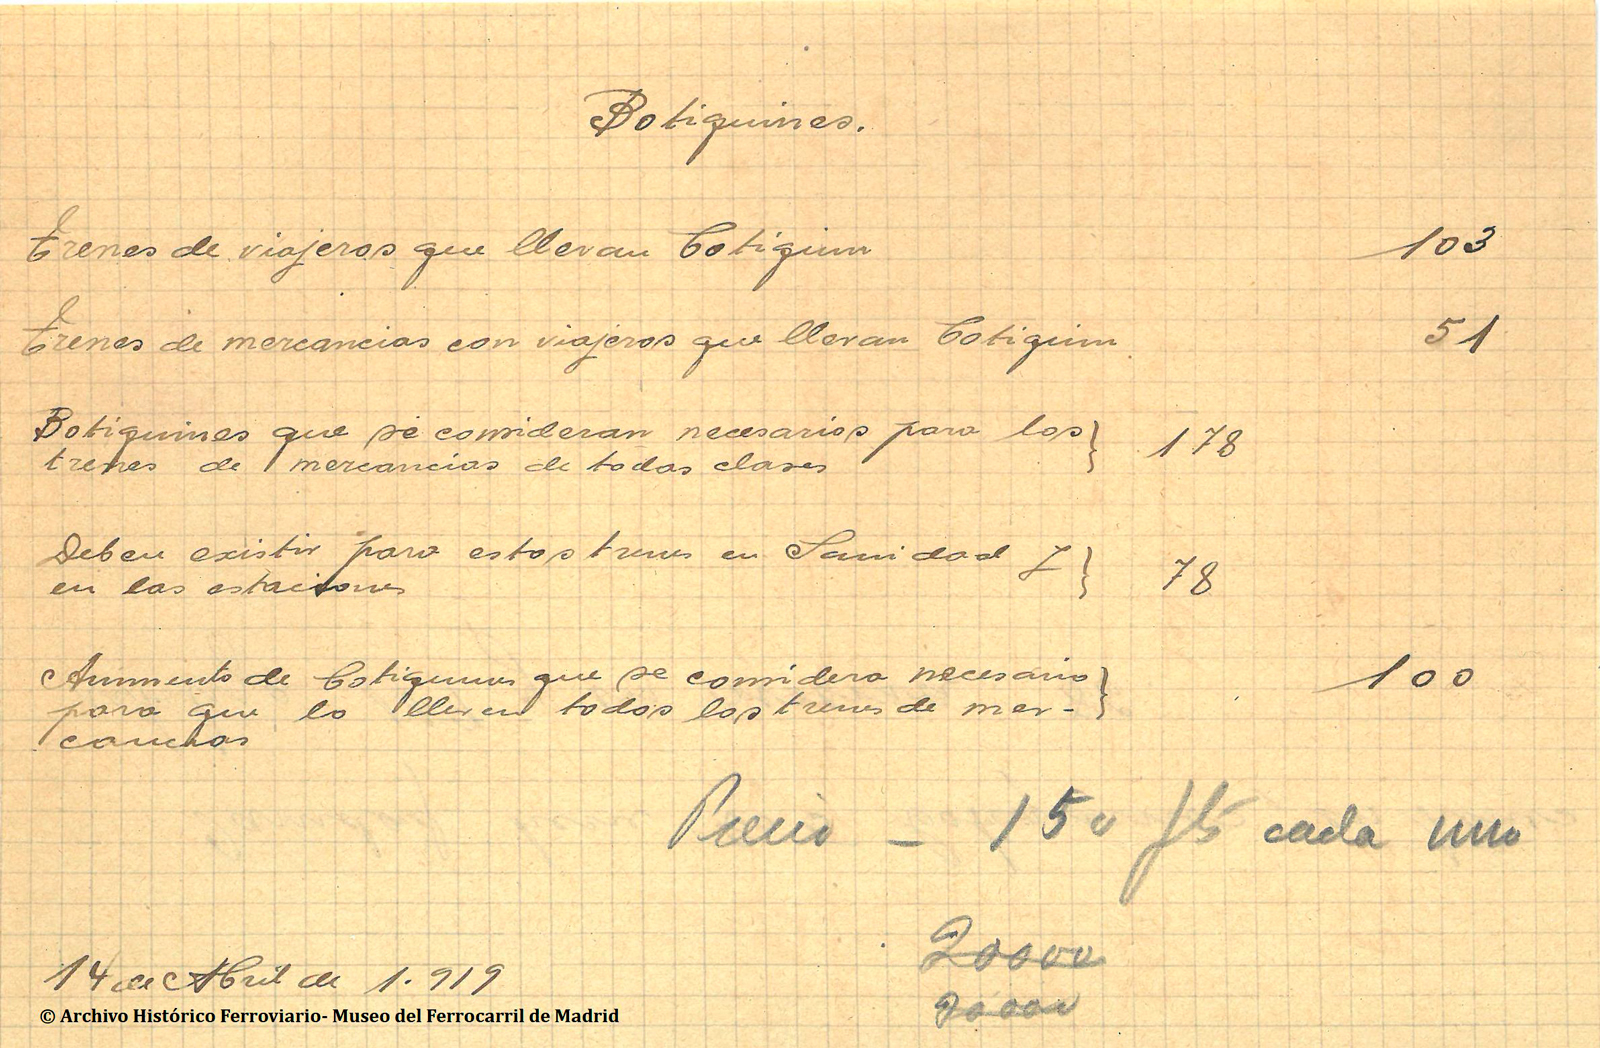 Botiquines.
Trenes de viajeros que llevan botiquin 103
Trenes de mercancias con viajeros que llevan botiquin 51
Botiquines que se consideran necesarios para los } 178
trenes de mercancias de todas clases
Deben existir para estos trenes en Sanidad y } 78
en las estaciones
Aumento de botiquines que se considera necesario } 100
para que lo lleven todos los trenes de mer-
cancias
Precio - 150 pts cada uno
20000
14 de Abril de 1.919
© Archivo Histórico Ferroviario- Museo del Ferrocarril de Madrid